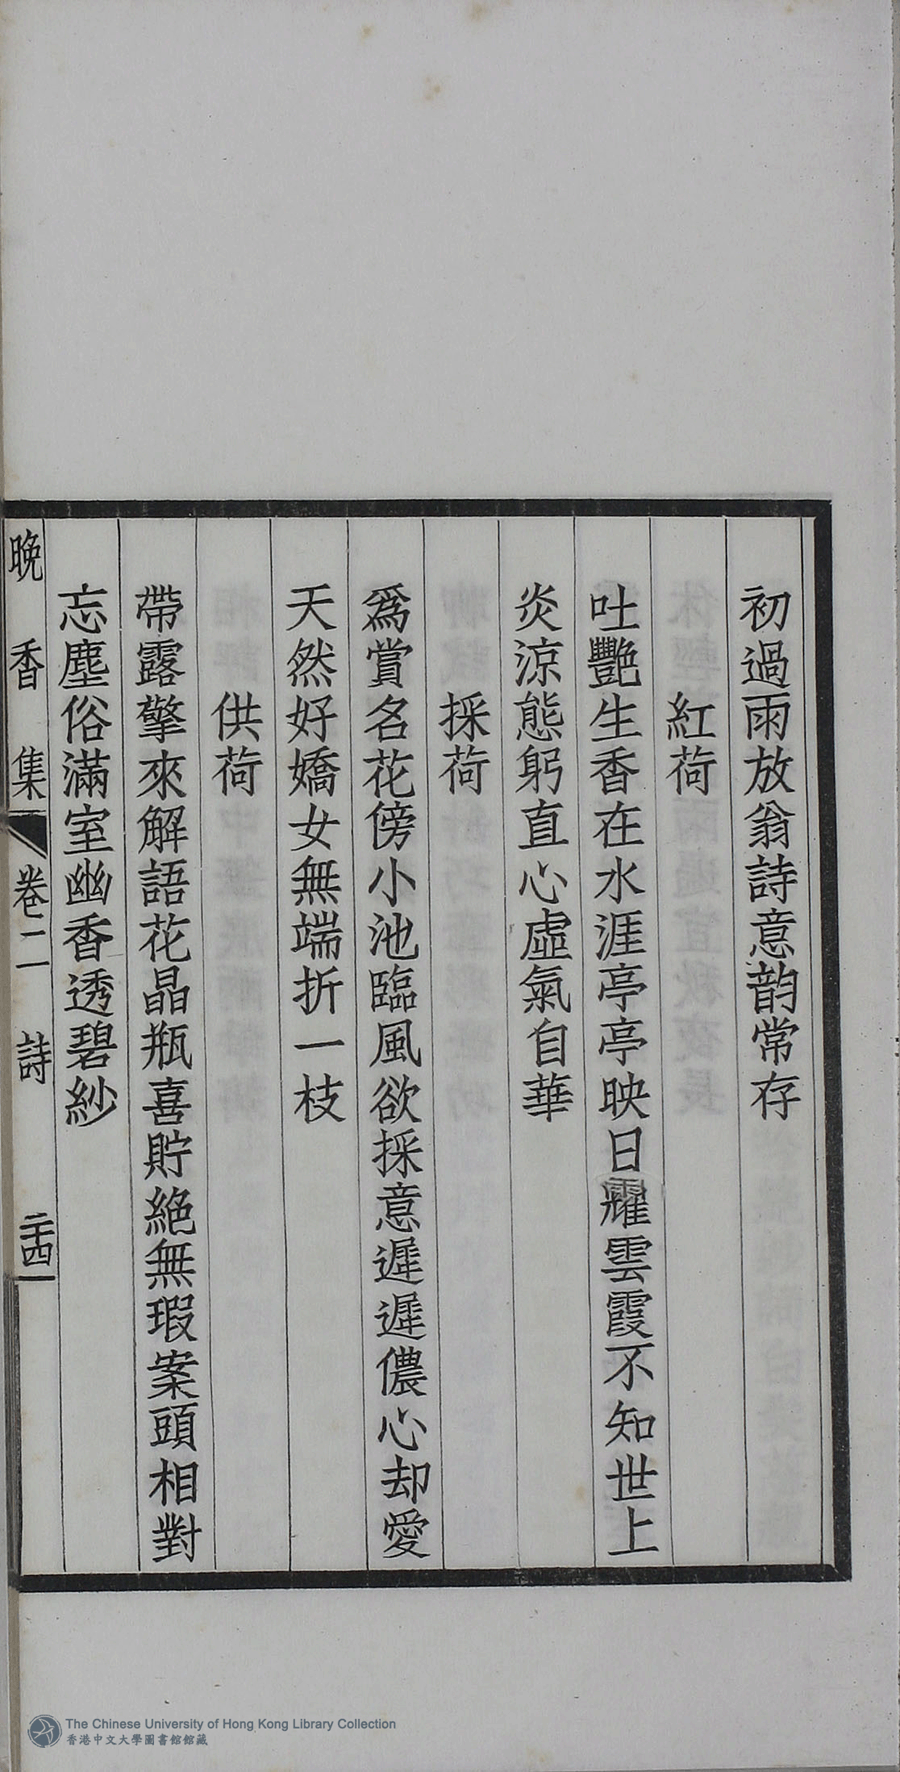 初過雨放翁詩意韵常存
紅荷
吐艷生香在水涯亭亭映日耀雲霞不知世上
炎涼態躬直心虛氣自華
採荷
爲賞名花傍小池臨風欲採意遲遲儂心却愛
天然好嬌女無端折一枝
供荷
帶露擎來解語花晶瓶喜貯絕無瑕案頭相對
忘塵俗滿室幽香透碧紗
晚香集 卷二 詩 二十四
The Chinese University of Hong Kong Library Collection
香港中文大學圖書館館藏